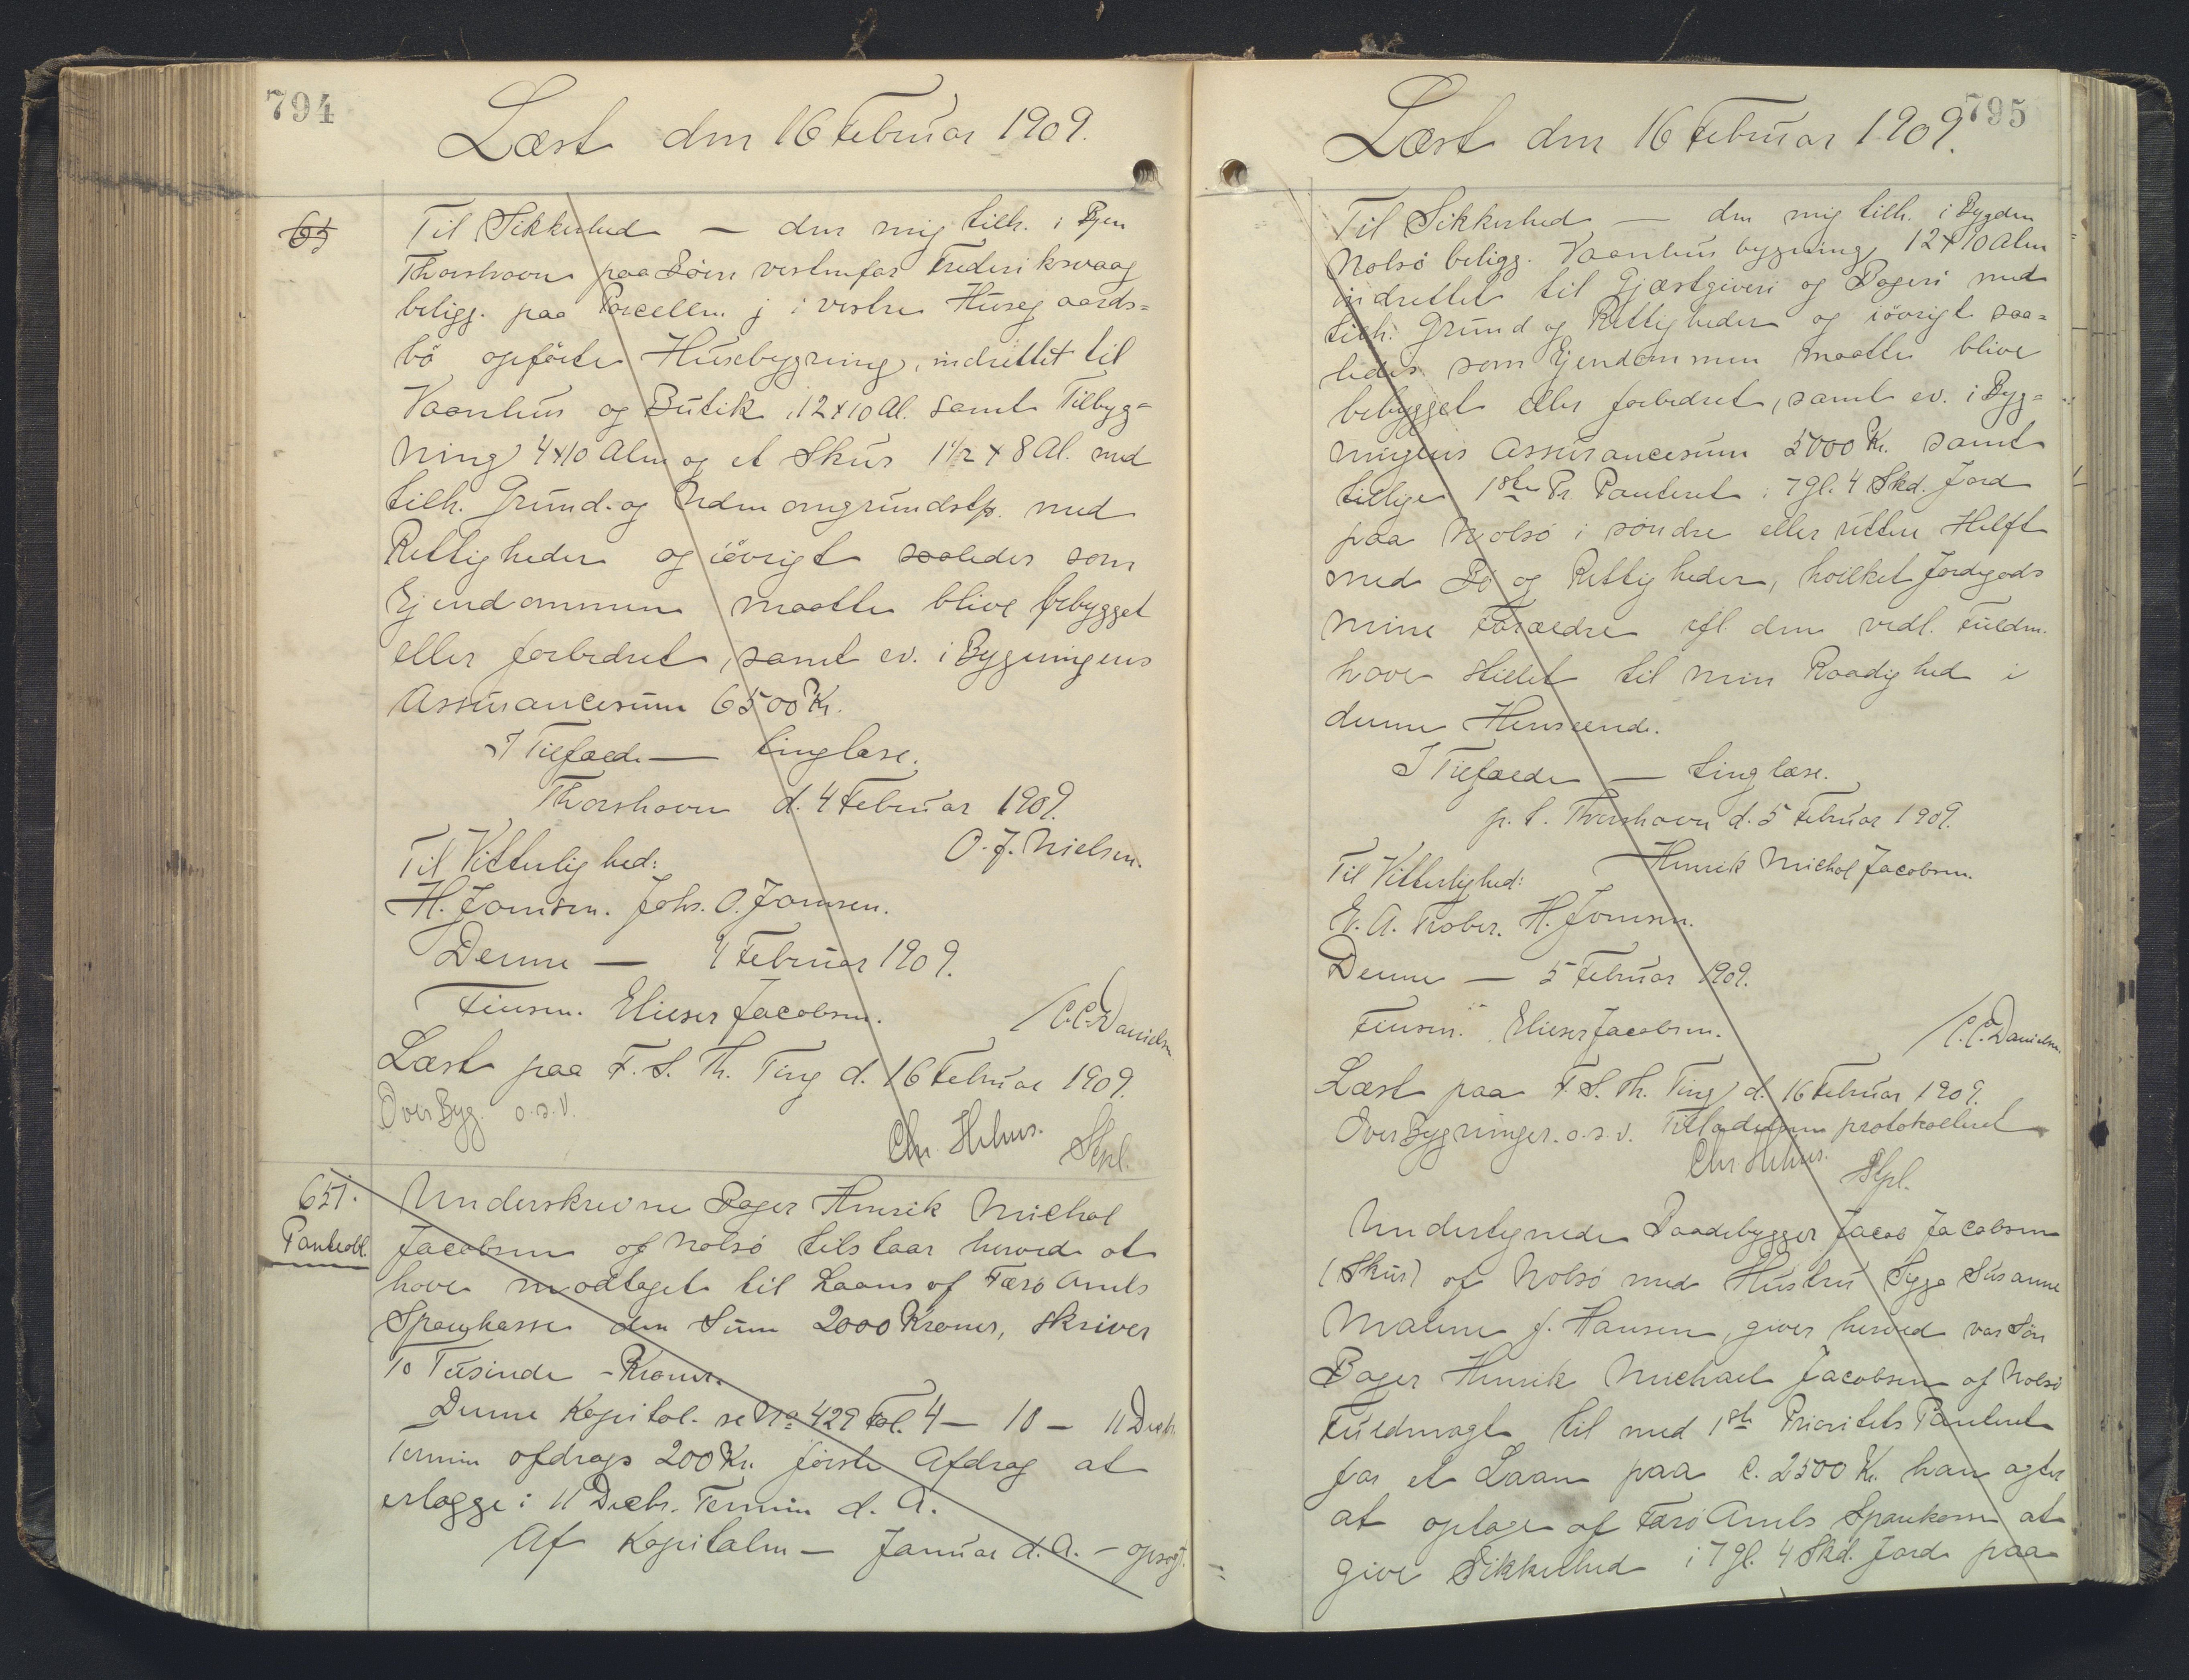 794
Læst den 16 Februar 1909.
65
Til Sikkerhed — den mig tilh. i Byen
Thorshavn paa Bøen vestenfor Frederiksvaag
beligg. paa Parcellen j i vestre Husegaards=
bø opførte Husebygning, indrettet til
Vaanhus og Butik, 12 x 10 Al. samt Tilbyg=
ning 4x10 Alen og et Skur 1 1/2 x 8 Al. med
tilh. Grund- og Udenomgrundstp. med
Rettigheder og iøvrigt saaledes som
Ejendommen maatte blive bebygget
eller forbedret, samt ev. i Bygningens
Assurancesum 6500 Kr.
I Tilfælde — tinglæse.
Thorshavn d. 4 Februar 1909.
O. J. Nielsen.
Til Vitterlighed:
H. Joensen. Johs. O. Joensen.
Denne — 4 Februar 1909.
Finsen. Elieser Jacobsen.
/C.C. Danielsen
Læst paa F. S. Th. Ting d. 16 Februar 1909.
Over Byg. o.s.v.
Chr. Helms. Stpl.
651.
Panteobl.
Underskrevne Bager Henrik Michal
Jacobsen af Nolsø tilstaar herved at
have modtaget til Laans af Færø Amts
Sparekasse den Sum 2000 Kroner, skriver
To Tusinde - Kroner.
Denne Kapital. se No 429 Fol. 4 — 10 — 11 Decbr
Termin afdrags 200 Kr. første Afdrag at
erlægge i 11 Decbr. Termin d. A.
Af Kapitalen — Januar d. A. — opsagt.
795
Læst den 16 Februar 1909.
Til Sikkerhed — den mig tilh. i Bygden
Nolsø beligg. Vaanhusbygning, 12 x 10 Alen
indrettet til Gjæstgiveri og Bageri med
tilh. Grund og Rettigheder og iøvrigt saa=
ledes som Ejendommen maatte blive
bebygget eller forbedret, samt ev. i Byg=
ningens Assurancesum 5000 Kr. samt
tillige 1ste Pr. Panteret i 7 gl. 4 Skd. Jord
paa Nolsø i søndre eller uttere Helft
med Bø og Rettigheder, hvilket Jordegods
mine Forældre efl. den vedl. Fuldm.
have stillet til min Raadighed i
denne Henseende.
I Tilfælde — tinglæse.
p. t. Thorshavn d. 5 Februar 1909.
Henrik Michal Jacobsen.
Til Vitterlighed:
H. Joensen.
Denne — 5 Februar 1909.
Finsen. Elieser Jacobsen.
/C.C. Danielsen.
Læst paa F. S. Th. Ting d. 16 Februar 1909.
Over Bygninger. o.s.v. Tilladelsen protokolleret
Chr Helms. Stpl.
Undertegnede Baadebygger Jacob Jacobsen
(Skur) af Nolsø med Hustru Sygge Susanne
Malene f. Hansen, giver herved vor Søn
Bager Henrik Michael Jacobsen af Nolsø
Fuldmagt til med 1ste Prioritets Panteret
for et Laan paa c. 2500 Kr. han agter
at optage af Færø Amts Sparekasse at
give Sikkerhed i 7 gl. 4 Skd. Jord paa